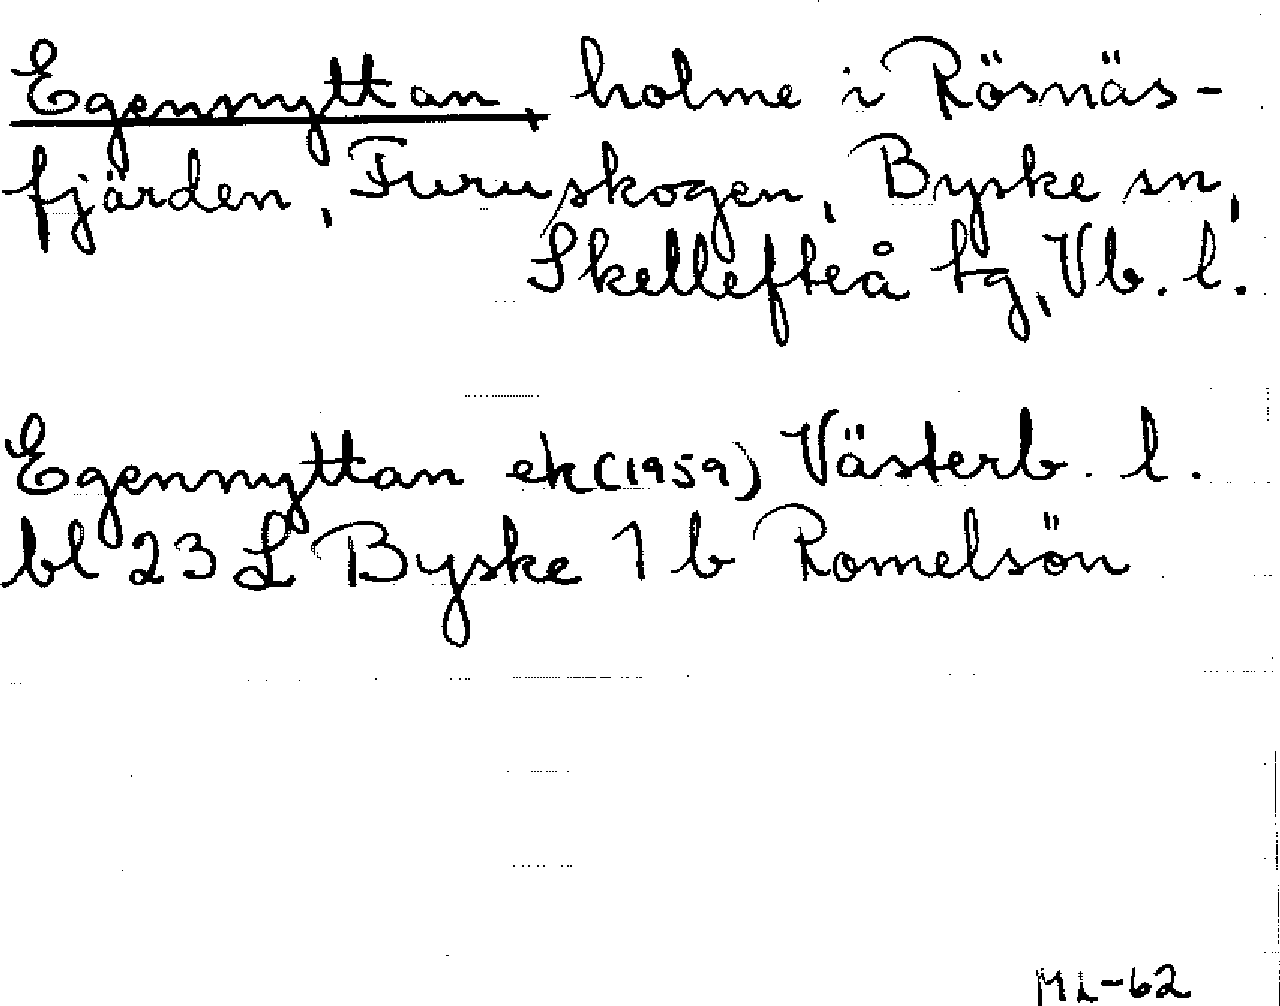 Egennyttan, holme i Rösnäs-
fjärden, Furuskogen, Byske sn,
Skellefteå tg, Vb. l.
Egennyttan ek (1959) Västerb. l.
bl 23 L Byske 1 b Romelsön
ML-62